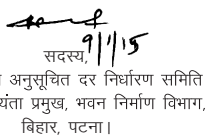 9/1/15
सदस्य,
अनुसूचित दर निर्धारण समिति
प्रमुख, भवन निर्माण विभाग,
बिहार, पटना।